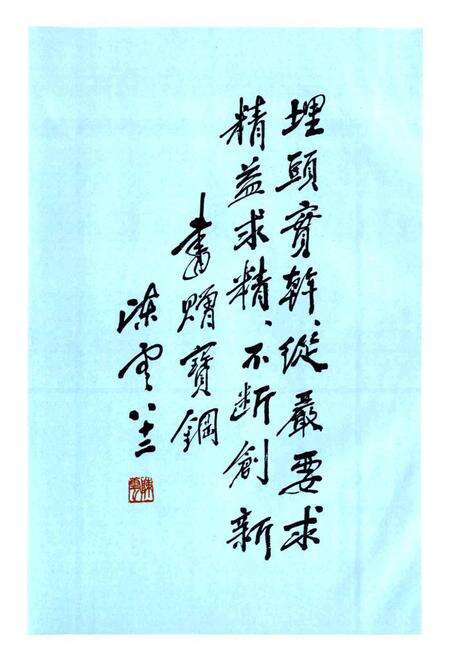 埋頭實幹、從嚴要求
精益求精、不断創新
書贈寶鋼
陈雲八十二
陳雲